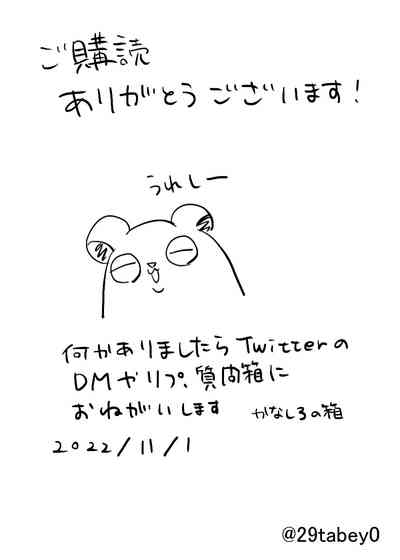 ご購読
ありがとうございます!
うれしー
何かありましたらTwitterの
DMやリプ、質問箱に
おねがいします
かなしろの箱
2022/11/1
@29tabey0